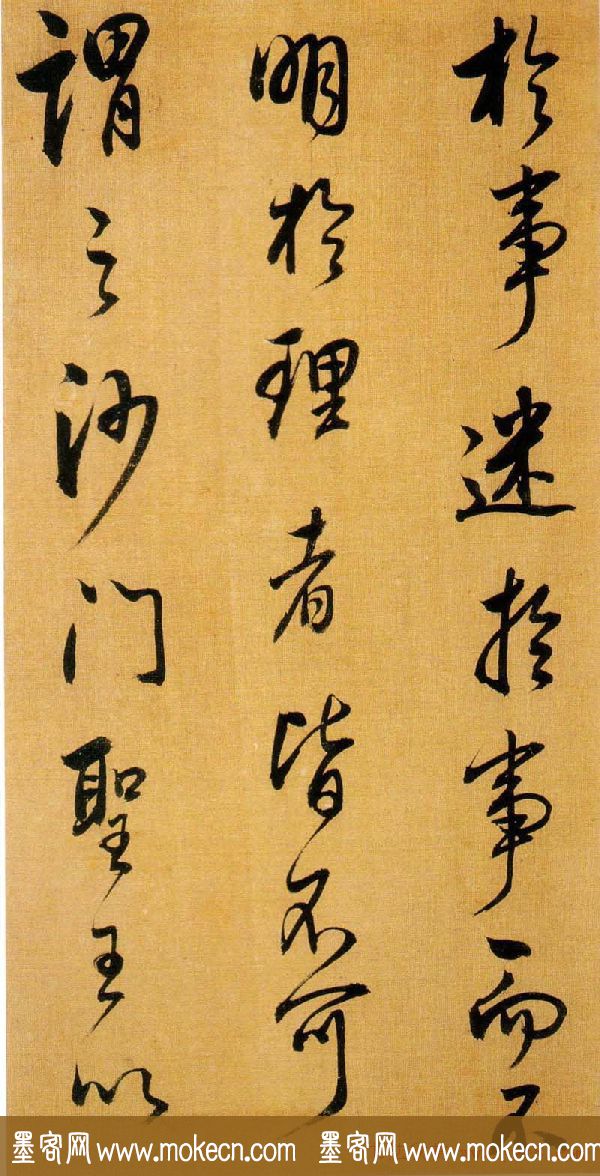 於事迷於事而不
明於理者皆不可
谓之沙门聖王以
墨客网 www.mokecn.com 墨客网 www.mokecn.com